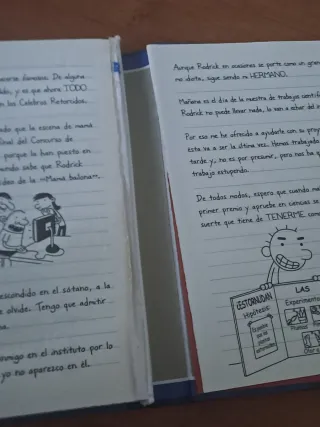 hacerse famosos. De alguna
y es que ahora TODO
en los Celebros Retorcidos.
que la escena de mamá
final del Concurso de
porque la han puesto en
sabe que Rodrick
vídeo de la «Mamá bailona».
escondido en el sótano, a la
olvide. Tengo que admitir
conmigo en el instituto por lo
yo no aparezco en él.
Aunque Rodrick en ocasiones se porte como un gran
idiota, sigue siendo mi HERMANO.
Mañana es el día de la muestra de trabajos científ
Rodrick no puede llevar nada, lo van a echar del ins
Por eso me he ofrecido a ayudarle con su proyec
esta va a ser la última vez. Hemos trabajado
tarde y, no es por presumir, pero nos ha q
trabajo estupendo.
De todos modos, espero que cuando mañ
primer premio y apruebe en ciencias se
suerte que tiene de TENERME como
¿ESTORNUDAN LAS
Hipótesis:
Experimento
Plumas